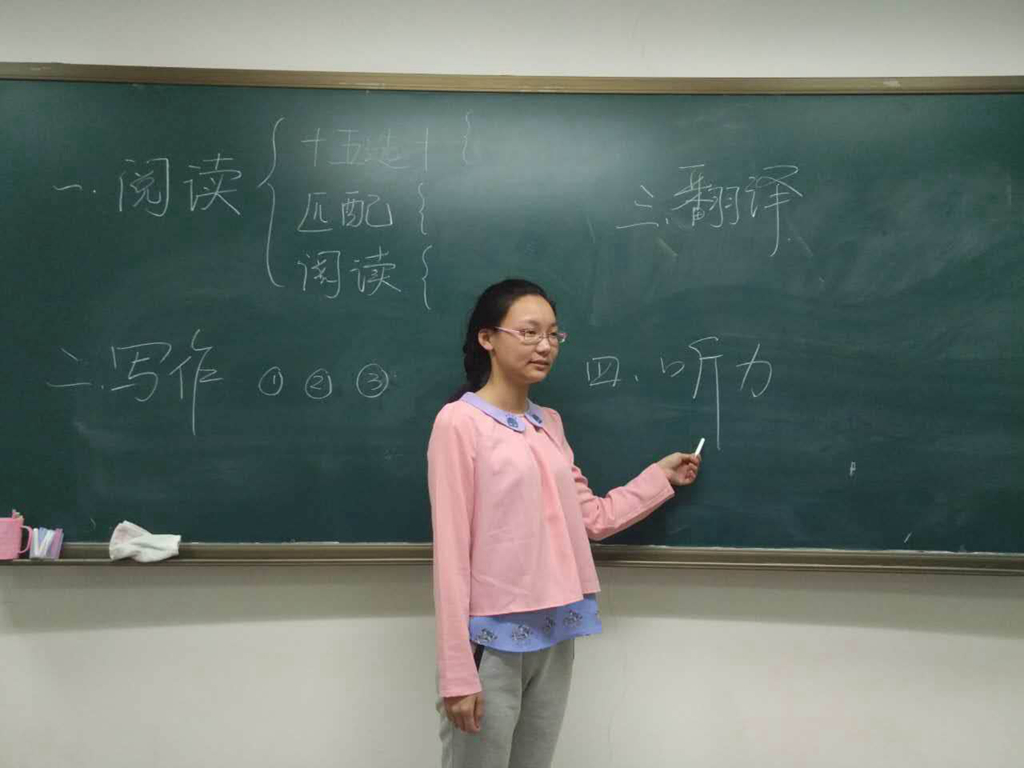 一. 阅读 {
十五选十 {
匹配 {
阅读 {
二. 写作 ① ② ③
三. 翻译
四. 听力